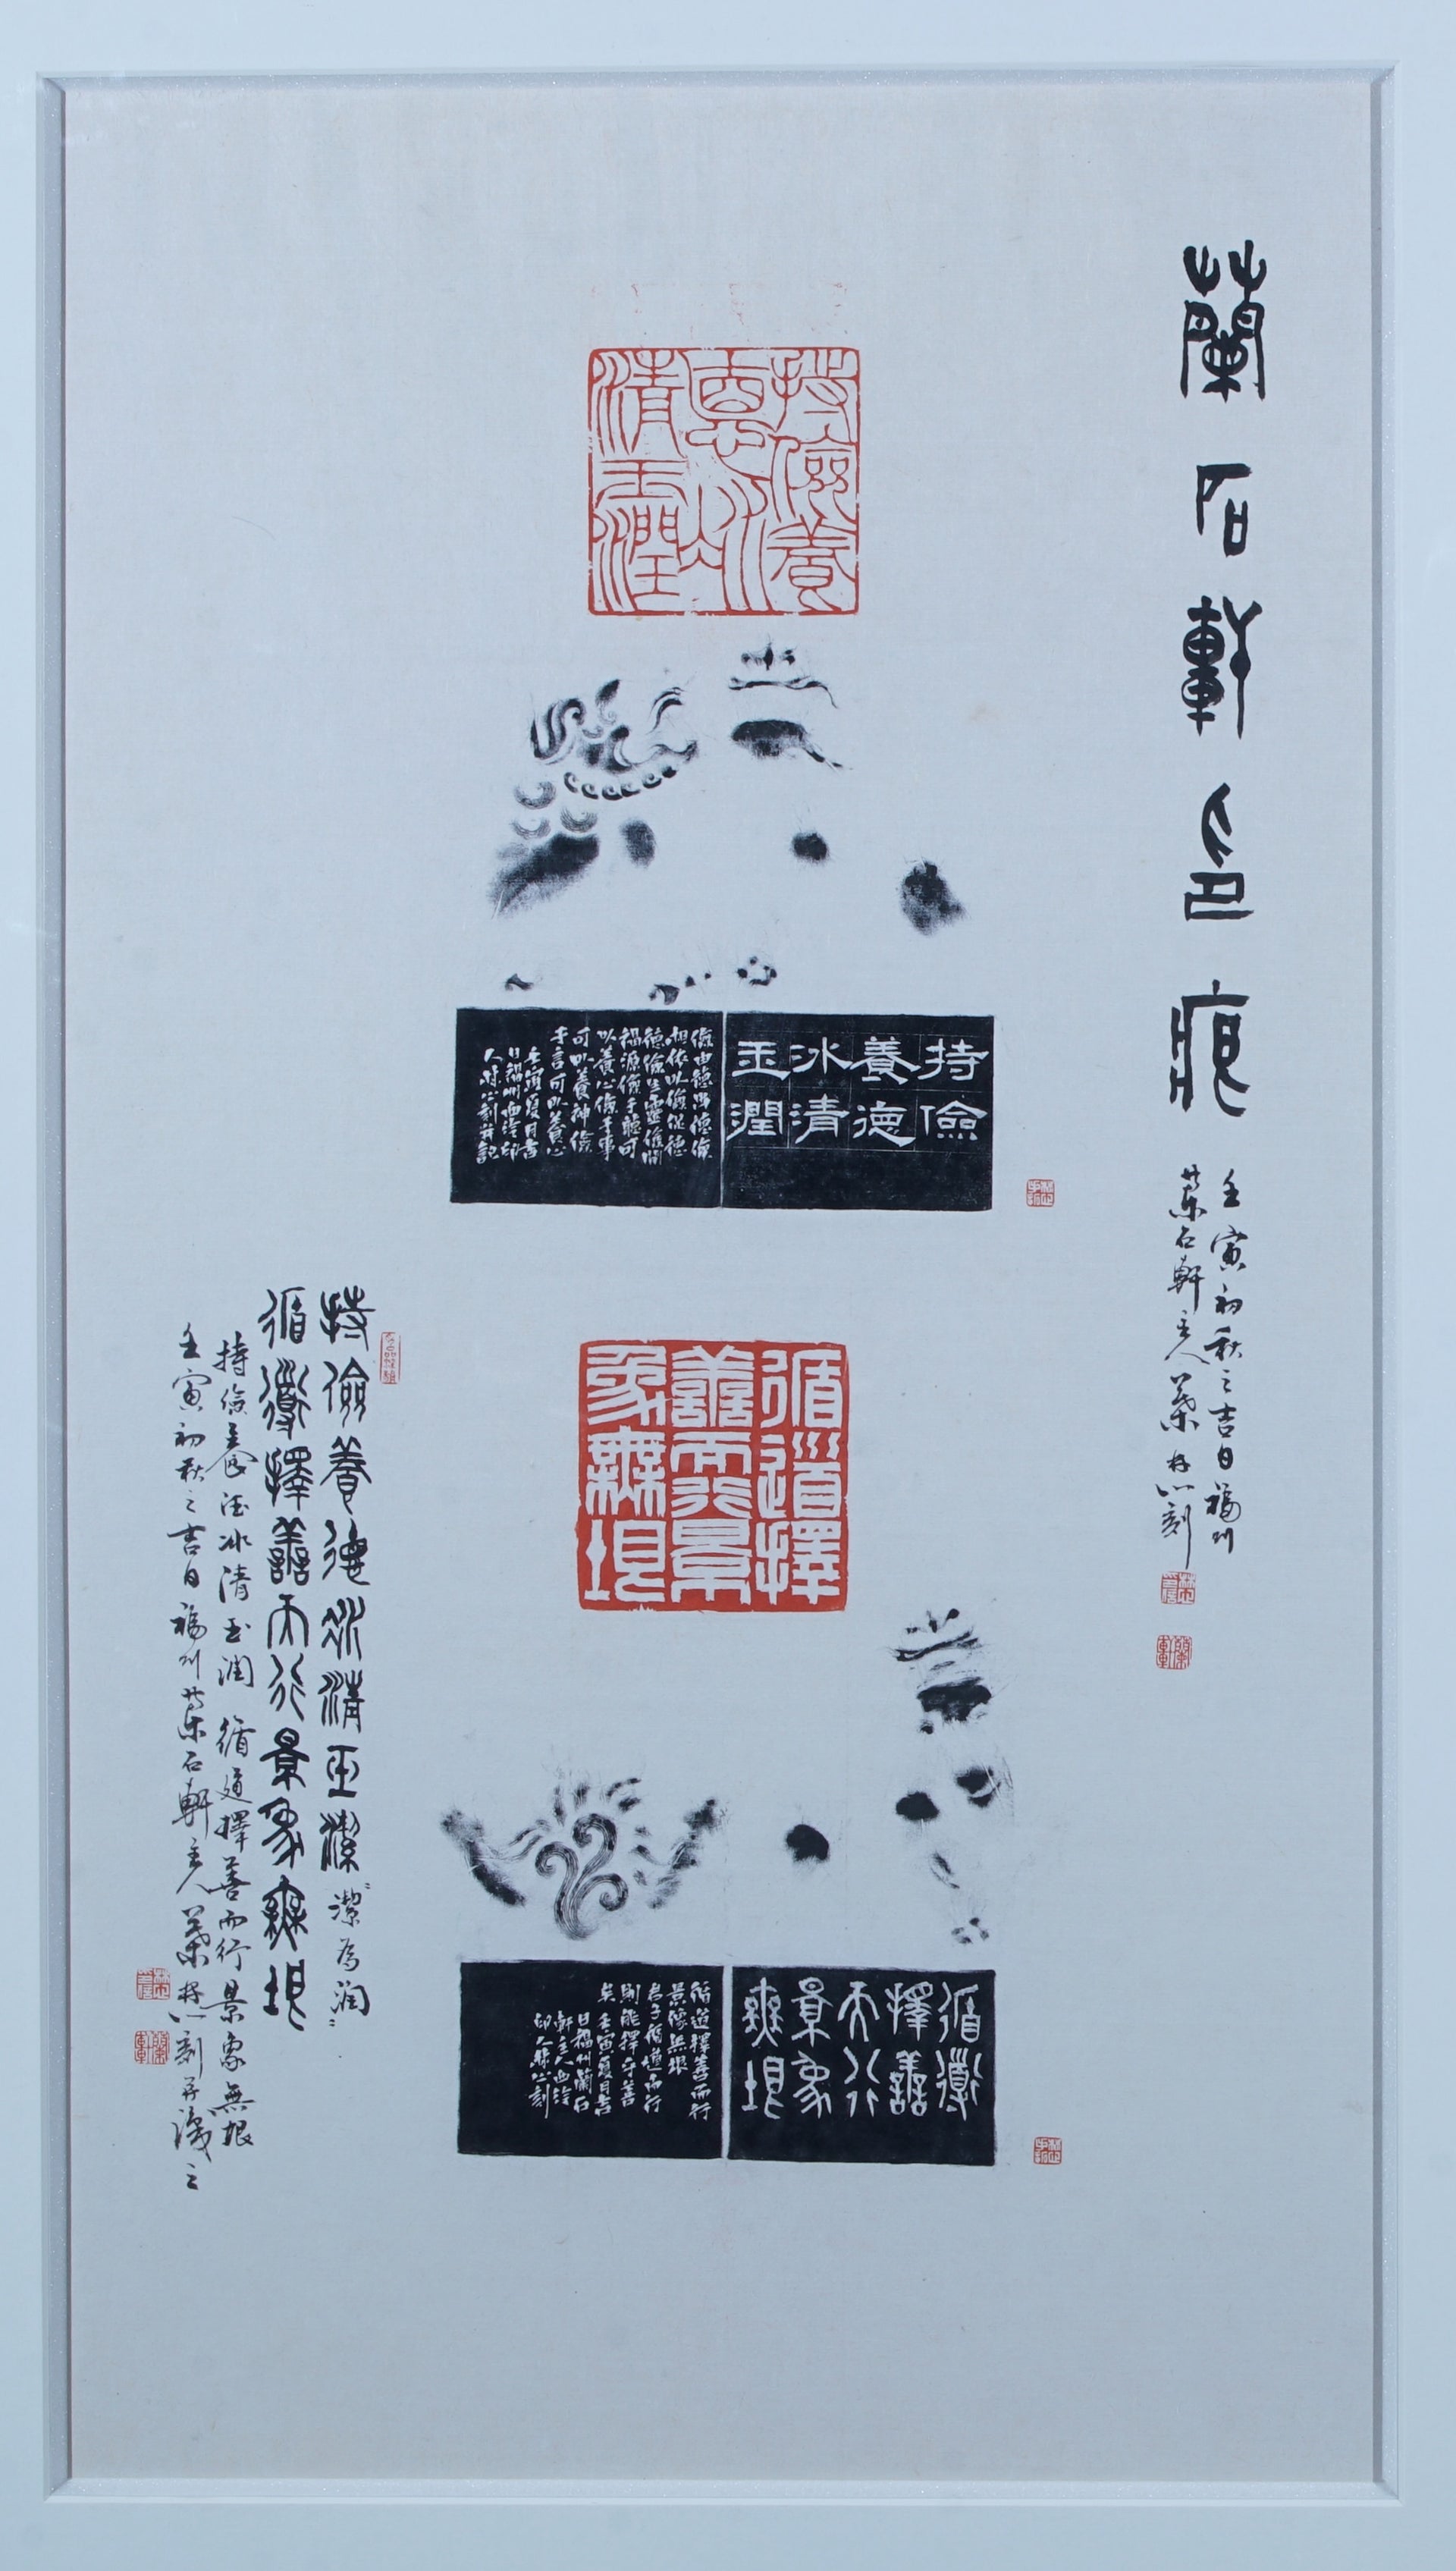 蘭石軒印痕
壬寅初秋之吉日福州
蘭石軒主人葉林心刻
持儉養
惪冰
清玉潤
持儉
養德
冰清
玉潤
儉由德
相依以儉養德
德儉生靈
福源儉于聽可
以養心儉于事
可以養神儉
于言可以養心
壬寅夏月吉
日福州西泠印
人林心刻并記
循道擇
善而行景
象無垠
循道
擇善
而行
景象
無垠
循道擇善而行
景象無垠
君子循道而行
則能擇乎善
矣壬寅夏月吉
日福州蘭石
軒主人西泠
印人林心刻
持儉養德冰清玉潔“潔為潤”
循道擇善而行景象無垠
持儉養德冰清玉潤循道擇善而行景象無垠
壬寅初秋之吉日福州蘭石軒主人葉林心刻并識之